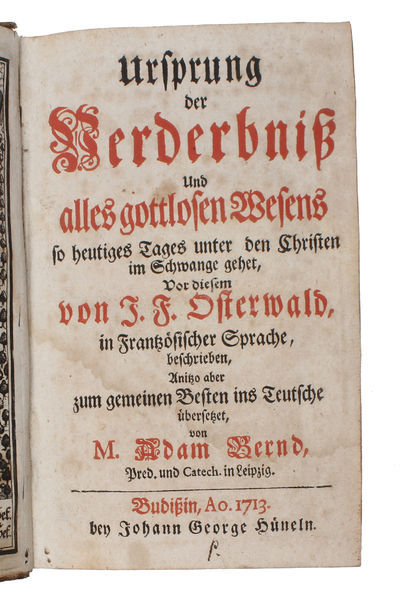 Ursprung
der
Verderbniß
Und
alles gottlosen Wesens
so heutiges Tages unter den Christen
im Schwange gehet,
Vor diesem
von J. F. Osterwald,
in Frantzösischer Sprache,
beschrieben,
Anitzo aber
zum gemeinen Besten ins Teutsche
übersetzet,
von
M. Adam Bernd,
Pred. und Catech. in Leipzig.
Budißin, Ao. 1713.
bey Johann George Hüneln.